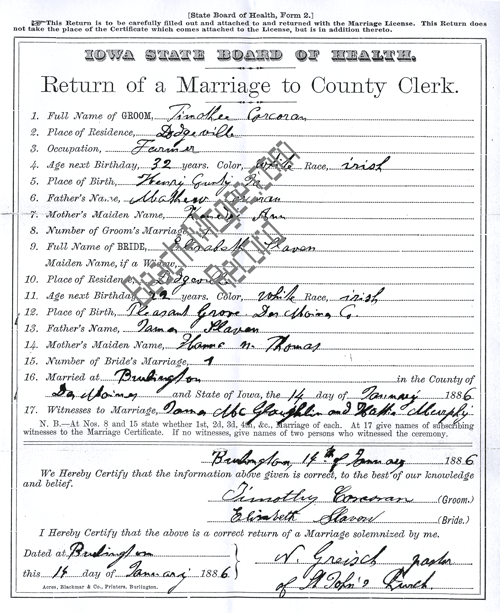 [State Board of Health, Form 2.]
This Return is to be carefully filled out and attached to and returned with the Marriage License. This Return does
not take the place of the Certificate which comes attached to the License, but is in addition thereto.
IOWA STATE BOARD OF HEALTH.
Return of a Marriage to County Clerk.
1. Full Name of GROOM, Timothee Corcoran
2. Place of Residence, Dodgeville
3. Occupation, Farmer
4. Age next Birthday, 32 years. Color, white Race, irish
5. Place of Birth, Henry County
6. Father's Name, Mathew Corcoran
7. Mother's Maiden Name, Ann
8. Number of Groom's Marriage,
9. Full Name of BRIDE, Elisabeth Slaven
Maiden Name, if a Widow,
10. Place of Residence, Dodgeville
11. Age next Birthday, 22 years. Color, white Race, irish
12. Place of Birth, Pleasant Grove Des Moines C.
13. Father's Name, James Slaven
14. Mother's Maiden Name, Thomas
15. Number of Bride's Marriage, 1
16. Married at Burlington in the County of
Des Moines and State of Iowa, the 14 day of January 1886
17. Witnesses to Marriage, James Mc Glaughlin and Murphy
N. B.—At Nos. 8 and 15 state whether 1st, 2d, 3d, 4th, &c., Marriage of each. At 17 give names of subscribing
witnesses to the Marriage Certificate. If no witnesses, give names of two persons who witnessed the ceremony.
Burlington, 14th of January 1886
We Hereby Certify that the information above given is correct, to the best of our knowledge
and belief.
Timothy Corcoran (Groom.)
Elisabeth Slaven (Bride.)
I Hereby Certify that the above is a correct return of a Marriage solemnized by me.
Dated at Burlington
this 14 day of January 1886
N. Greisch pastor
of St John's Church
Acres, Blackmar & Co., Printers, Burlington.